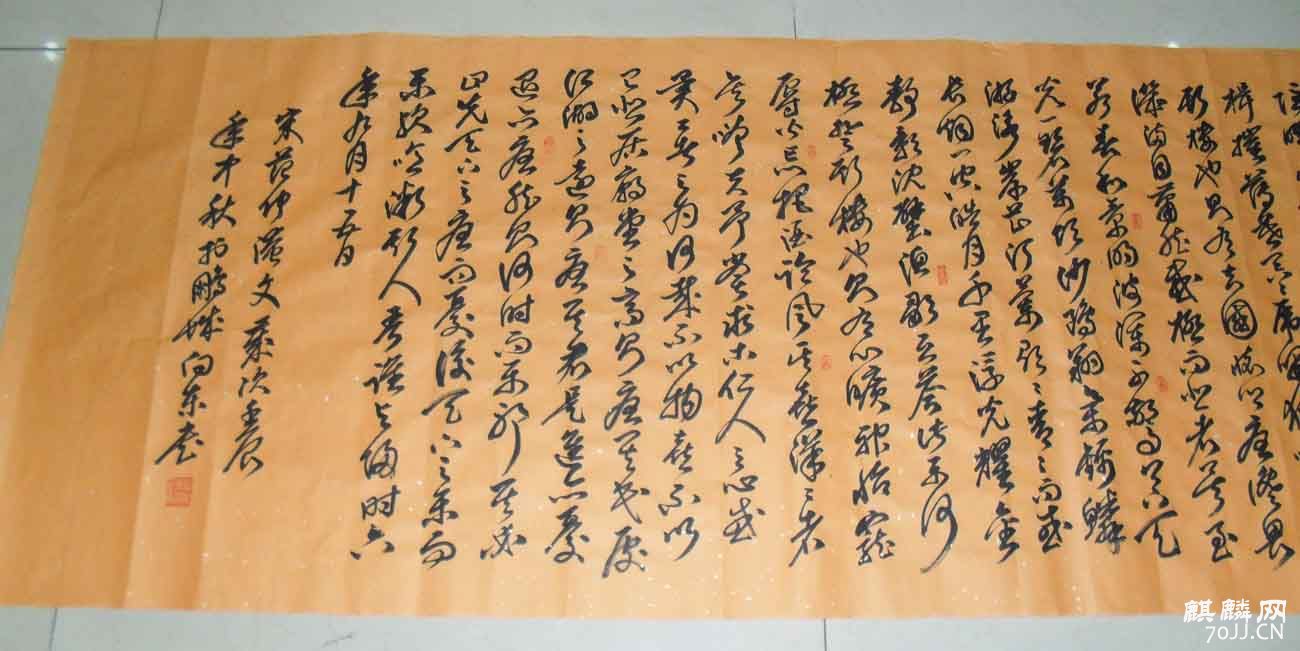 楫摧薄暮冥冥虎啸猿啼
斯楼也则有去國怀乡忧谗畏
讥满目萧然感极而悲者矣至
若春和景明波澜不惊上下天
光一碧万顷沙鸥翔集锦鳞
游泳岸芷汀兰郁々青々而或
长烟一空皓月千里浮光耀金
静影沉璧渔歌互答此乐何
极登斯楼也则有心旷神怡宠
辱皆忘把酒临风其喜洋々者
矣嗟夫予尝求古仁人之心或
异二者之为何哉不以物喜不以
己悲居庙堂之高则忧其民处
江湖之远则忧其君是进亦忧
退亦忧然则何时而乐耶其必
曰先天下之忧而忧後天下之乐而
乐欤噫微斯人吾谁与归时六
年九月十五日
宋范仲淹文岁次壬辰
年中秋於鹏城向东书
麒麟网
70JJ.CN